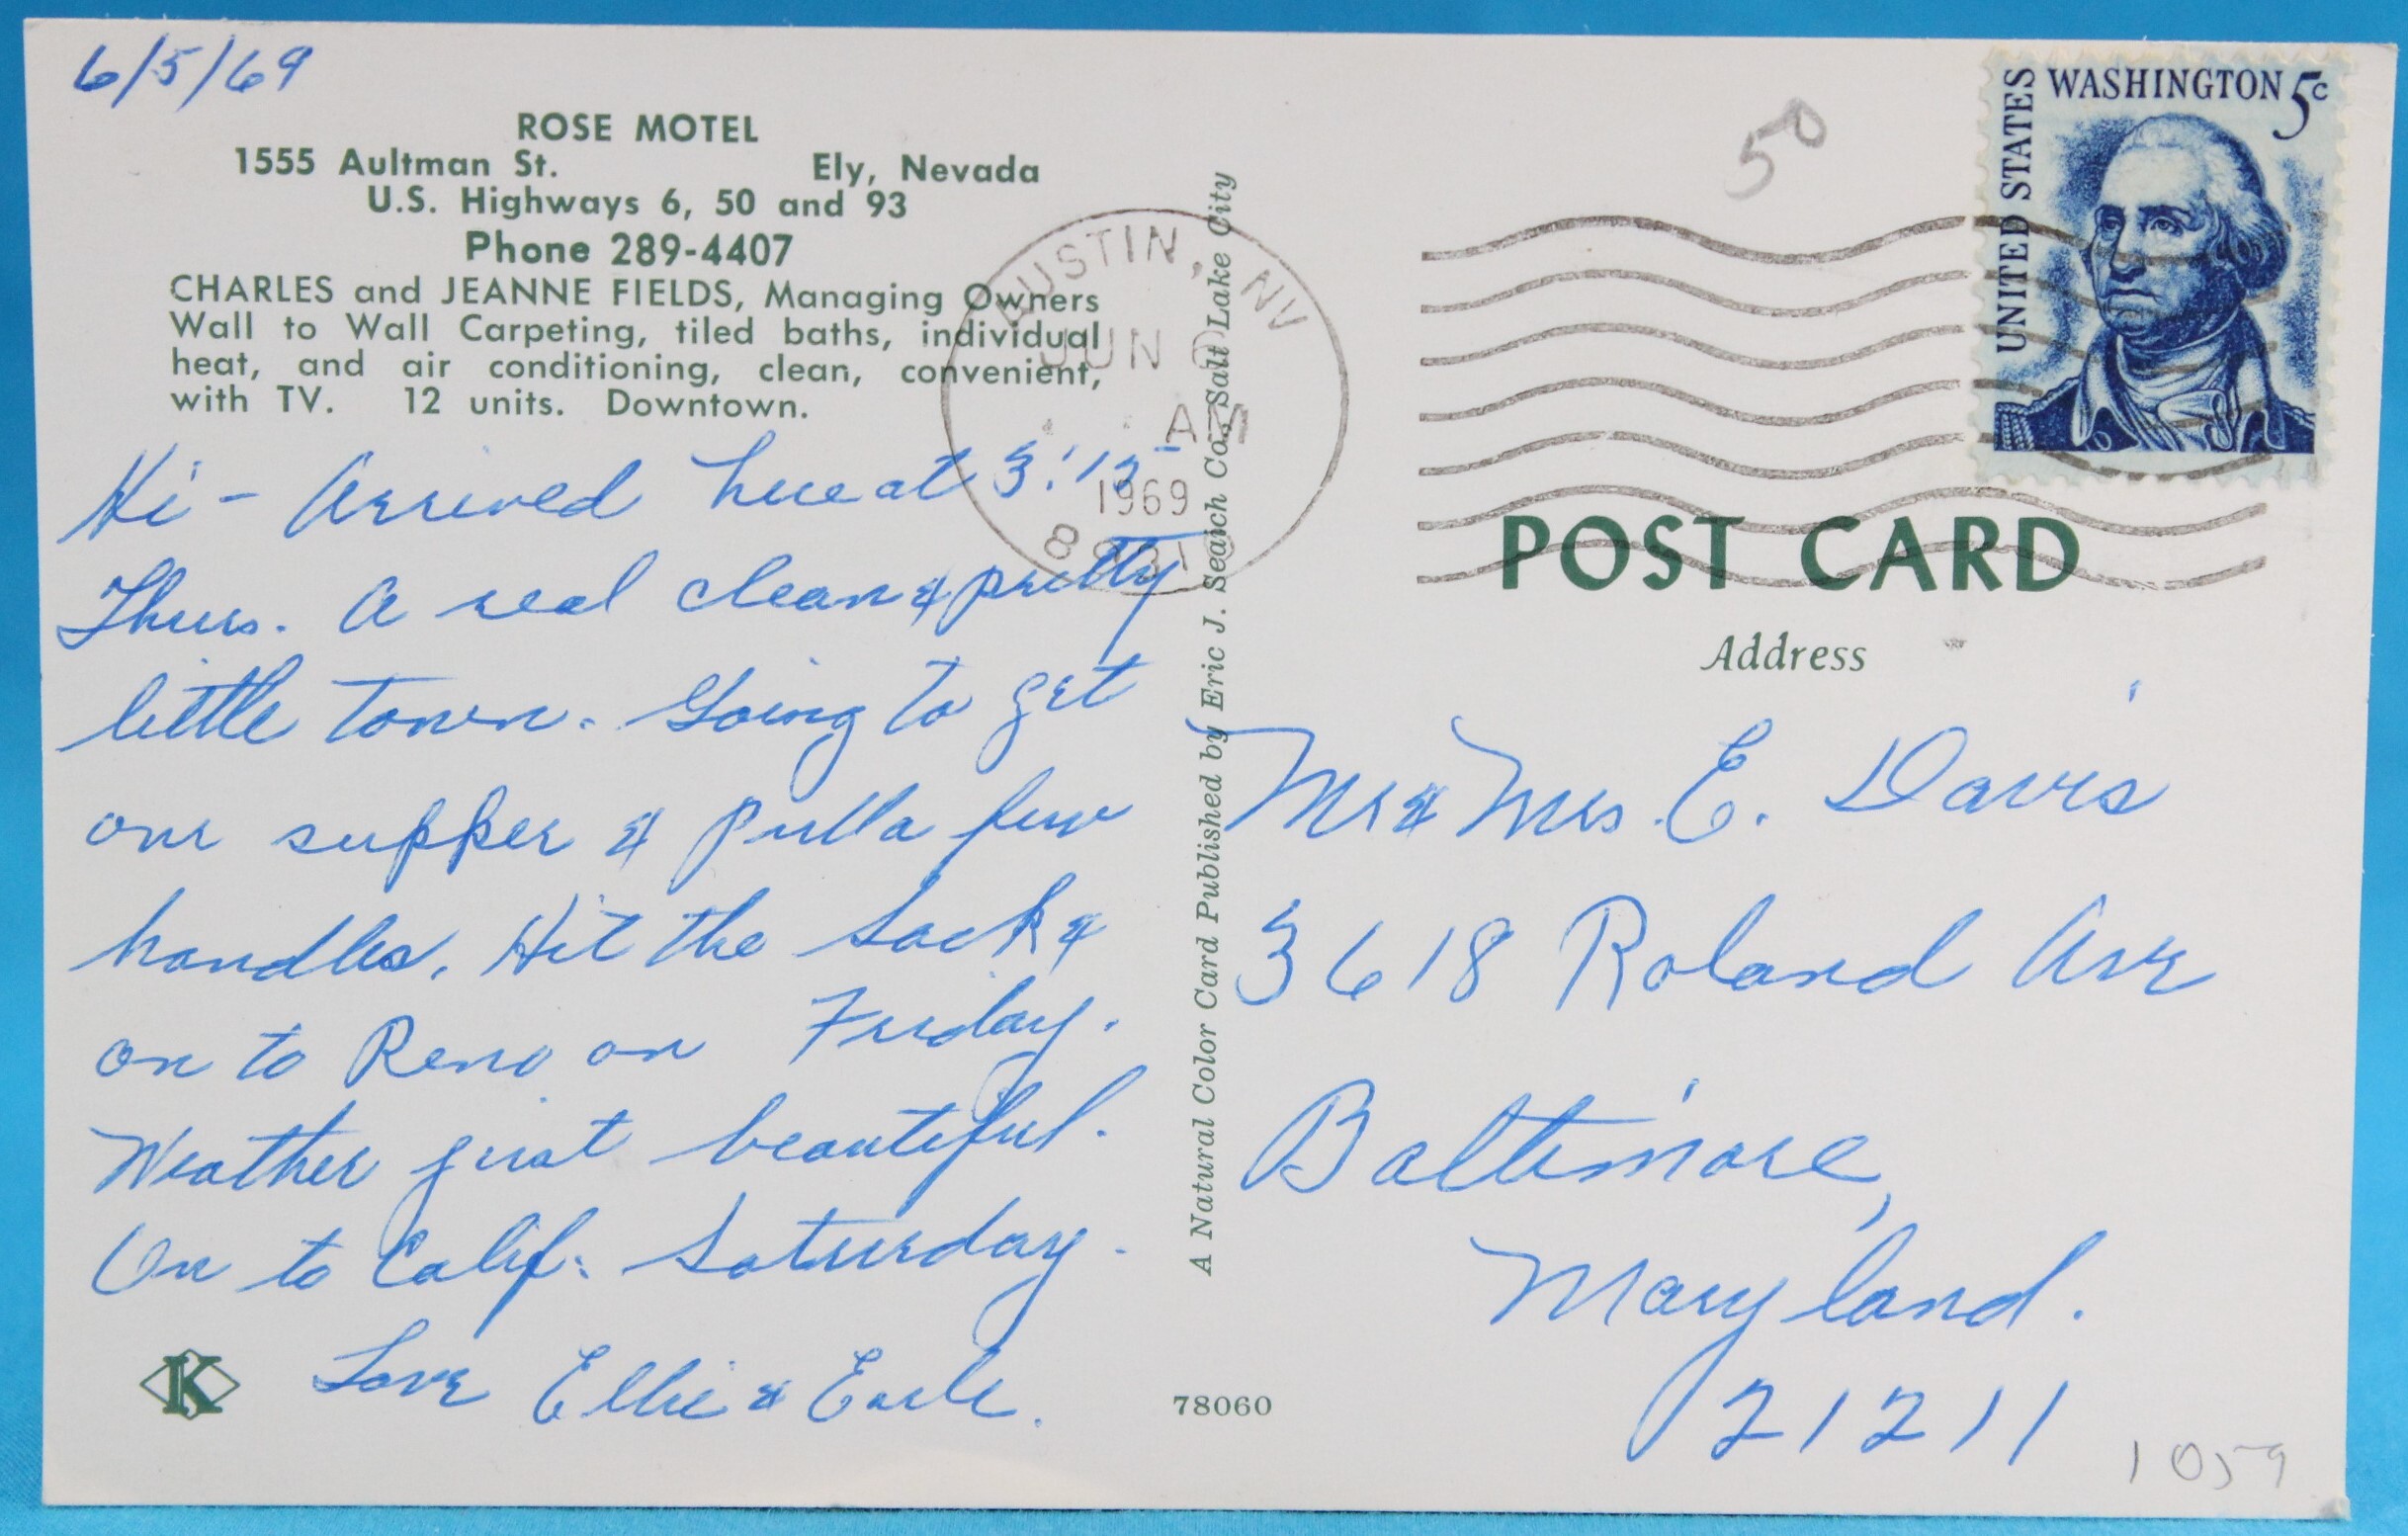 6/5/69
ROSE MOTEL
1555 Aultman St. Ely, Nevada
U.S. Highways 6, 50 and 93
Phone 289-4407
CHARLES and JEANNE FIELDS, Managing Owners
Wall to Wall Carpeting, tiled baths, individual
heat, and air conditioning, clean, convenient,
with TV. 12 units. Downtown.
Hi - Arrived here at 3:15
Thurs. A real clean & pretty
little town. Going to get
our supper & pull a few
handles. Hit the sack &
on to Reno on Friday.
Weather just beautiful.
On to Calif. Saturday.
Love Ellie & Earle.
K
A Natural Color Card Published by Eric J. Seaich Co., Salt Lake City
78060
AUSTIN, NV
JUN
AM
1969
50
UNITED STATES
WASHINGTON 5c
POST CARD
Address
Mr & Mrs. E. Davis
3618 Roland Ave
Baltimore,
Maryland.
21211
1059